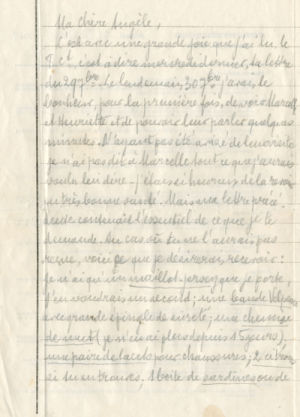 Ma chère Angèle,
C'est avec une grande joie que j'ai lu, le
1er Ct, c'est à dire mercredi dernier, ta lettre
du 29 7bre. Le lendemain, 30 7bre j'avais le
bonheur, pour la première fois, de voir Marcel
et Henriette et de pouvoir leur parler quelques
minutes. N'ayant pas été avisé de leur visite
je n'ai pas dit à Marcelle tout ce que j'aurais
voulu lui dire - j'étais si heureux de la revoir
en très bonne santé. Mais ma lettre précé-
dente contenait l'essentiel de ce que je te
demande. Au cas où tu ne l'aurais pas
reçue, voici ce que je désirerais recevoir :
Je n'ai qu'un maillot-jersey que je porte,
j'en voudrais un second ; une bande Velpeau
avec grande épingle de sûreté ; une chemise
de nuit (je n'en ai plus depuis 15 jours)
une paire de lacets pour chaussures ; 2
si tu en trouves, 1 boîte de sardines ou de